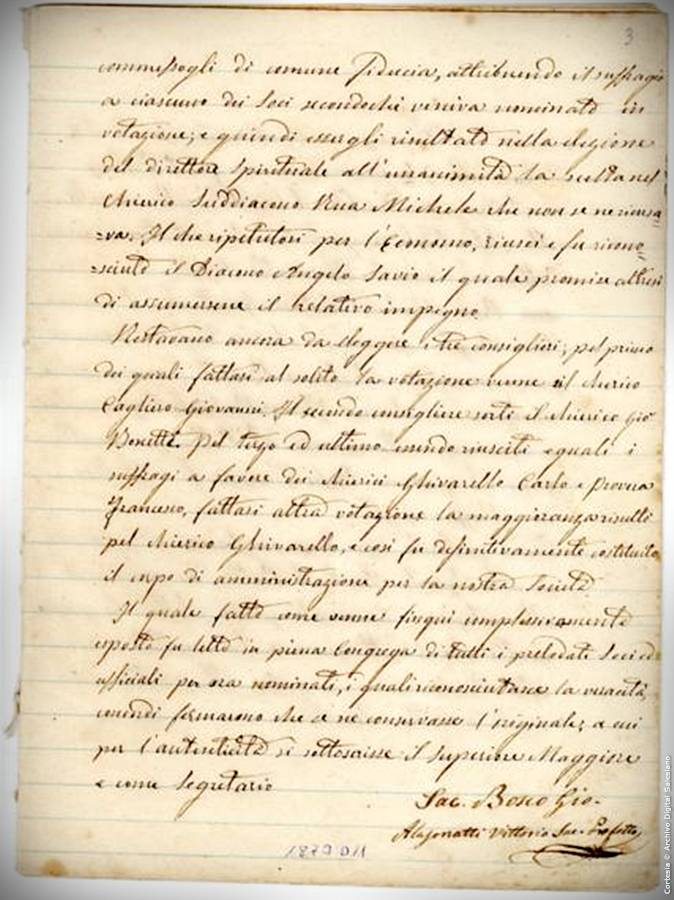 3
commessogli di comune fiducia, attribuendo il suffragio
a ciascuno dei Soci secondochè veniva nominato in
votazione; e quindi essergli risultato nella elezione
del direttore Spirituale all'unanimità la scelta nel
Chierico Suddiacono Rua Michele che non se ne ricusa=
=va. Il che ripetutosi per l'Economo, riuscì e fu ricono=
=sciuto il Diacono Angelo Savio il quale promise altresì
di assumersene il relativo impegno
Restavano ancora da eleggere i tre consiglieri; pel primo
dei quali fattasi al solito la votazione venne il chierico
Cagliero Giovanni. Il secondo consigliere sortì il chierico Gio
Bonetti. Pel terzo ed ultimo essendo riusciti eguali i
suffragi a favore dei chierici Ghivarello Carlo e Provera
Francesco, fattasi altra votazione la maggioranza risultò
pel chierico Ghivarello, e così fu definitivamente costituito
il corpo di amministrazione per la nostra Società
Il quale fatto come venne finqui complessivamente
esposto fu letto in piena Congrega di tutti i prelodati Soci ed
ufficiali per ora nominati, i quali riconosciutane la veracità,
concordi fermarono che se ne conservasse l'originale, a cui
per l'autenticità si sottoscrisse il Superiore Maggiore
e come Segretario
Sac. Bosco Gio.
Alasonatti Vittorio Sac. Prefetto
Cortesia © Archivo Digital Salesiano